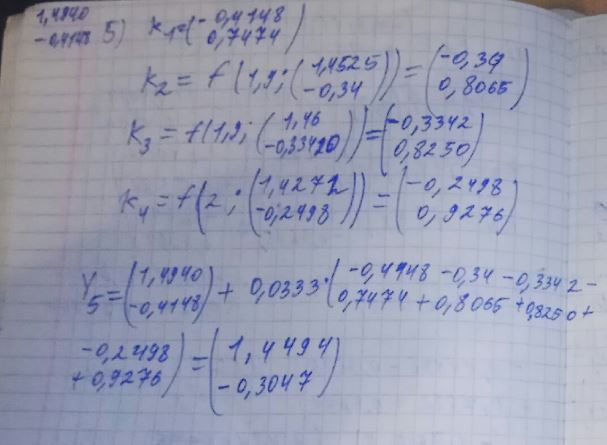 1,4940
-0,4148 5) k₁=(-0,4148 0,7474)
k₂ = f(1,9;(1,4525 -0,34)) = (-0,34 0,8065)
k₃ = f(1,9;(1,46 -0,33420)) = (-0,3342 0,8250)
k₄ = f(2;(1,4272 -0,2498)) = (-0,2498 0,9276)
Y₅ = (1,4940 -0,4148) + 0,0333·(-0,4948 -0,34 -0,3342 -
0,7474 + 0,8065 +0,8250+
-0,2498 +0,9276) = (1,4494 -0,3047)